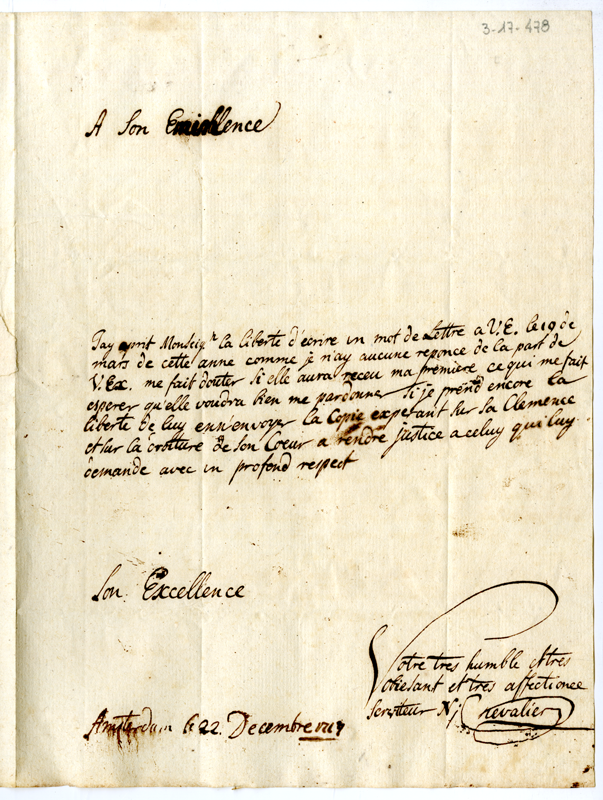 3-17-478
A Son
Jay prit Monseig.r la liberte d'écrire un mot de Lettre a V.E. le 19 de
mars de cette anne comme je n'ay aucune reponce de la part de
V.Ex. me fait douter si elle aura receu ma première ce qui me fait
esperer qu'elle voudra bien me pardonner si je prend encore la
liberte de luy ennvenvoyr la Copie experant sur sa Clemence
et sur la droiture de son Coeur a rendre justice a celuy qui luy
demande avec un profond respect
Son Excellence
Votre tres humble et tres
obiesant et tres affectionee
serviteur N: Chevalier
Amsterdam le 22. Decembre